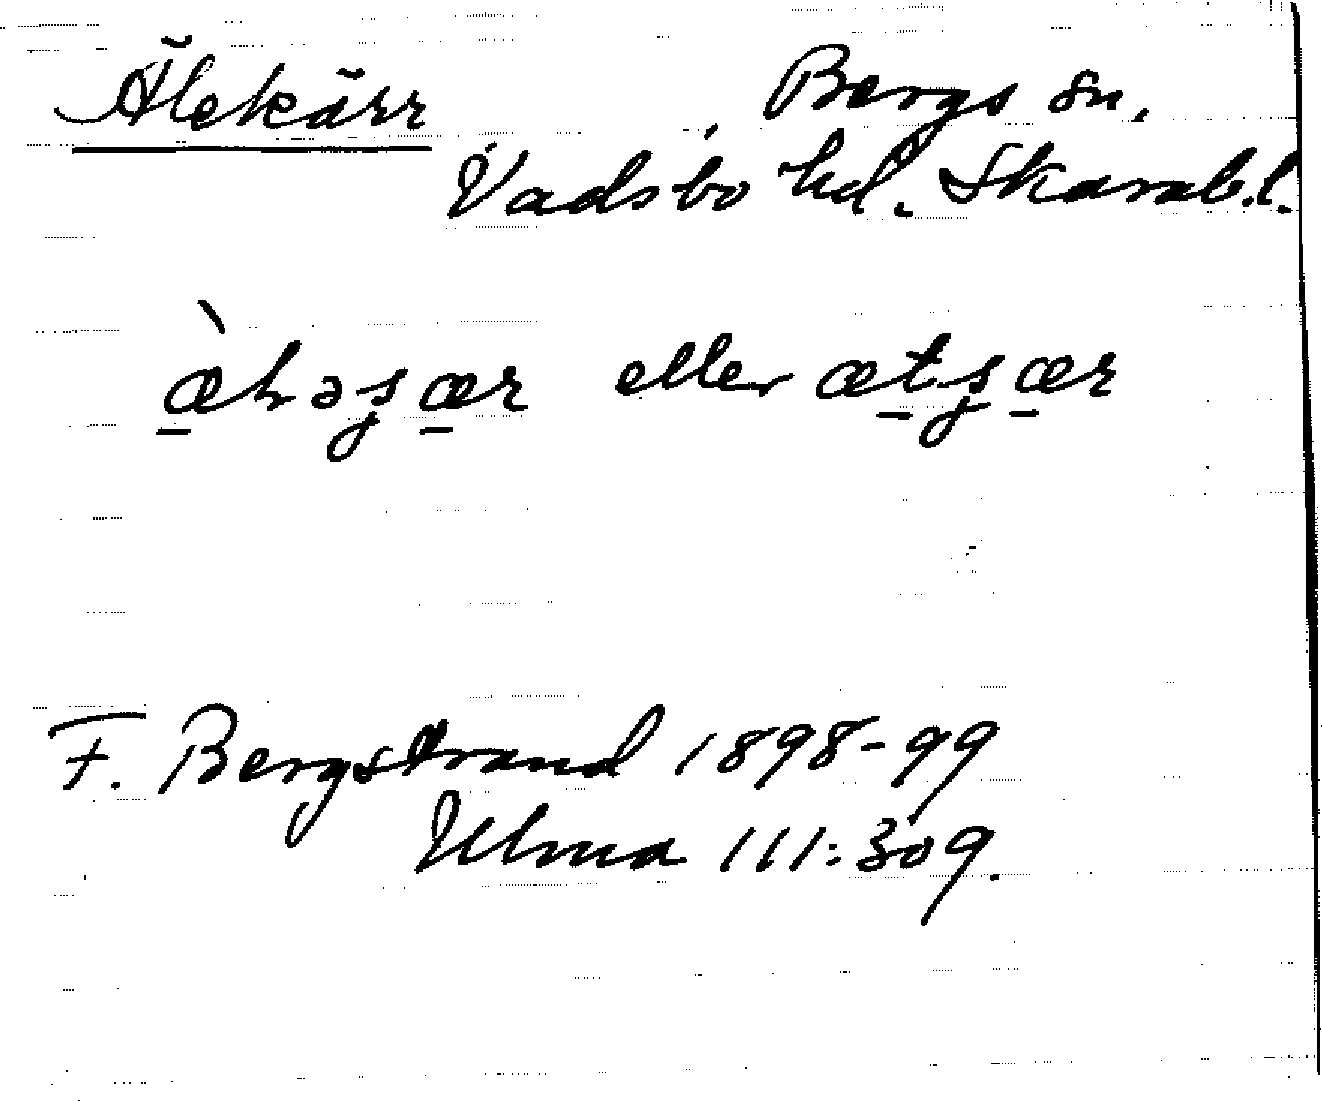 Älekärr, Bergs sn,
Vadsbo hd. Skarab.l.
æ̀lɩəʂær eller ætʂær
F. Bergstrand 1898-99
Ulma 111:309.